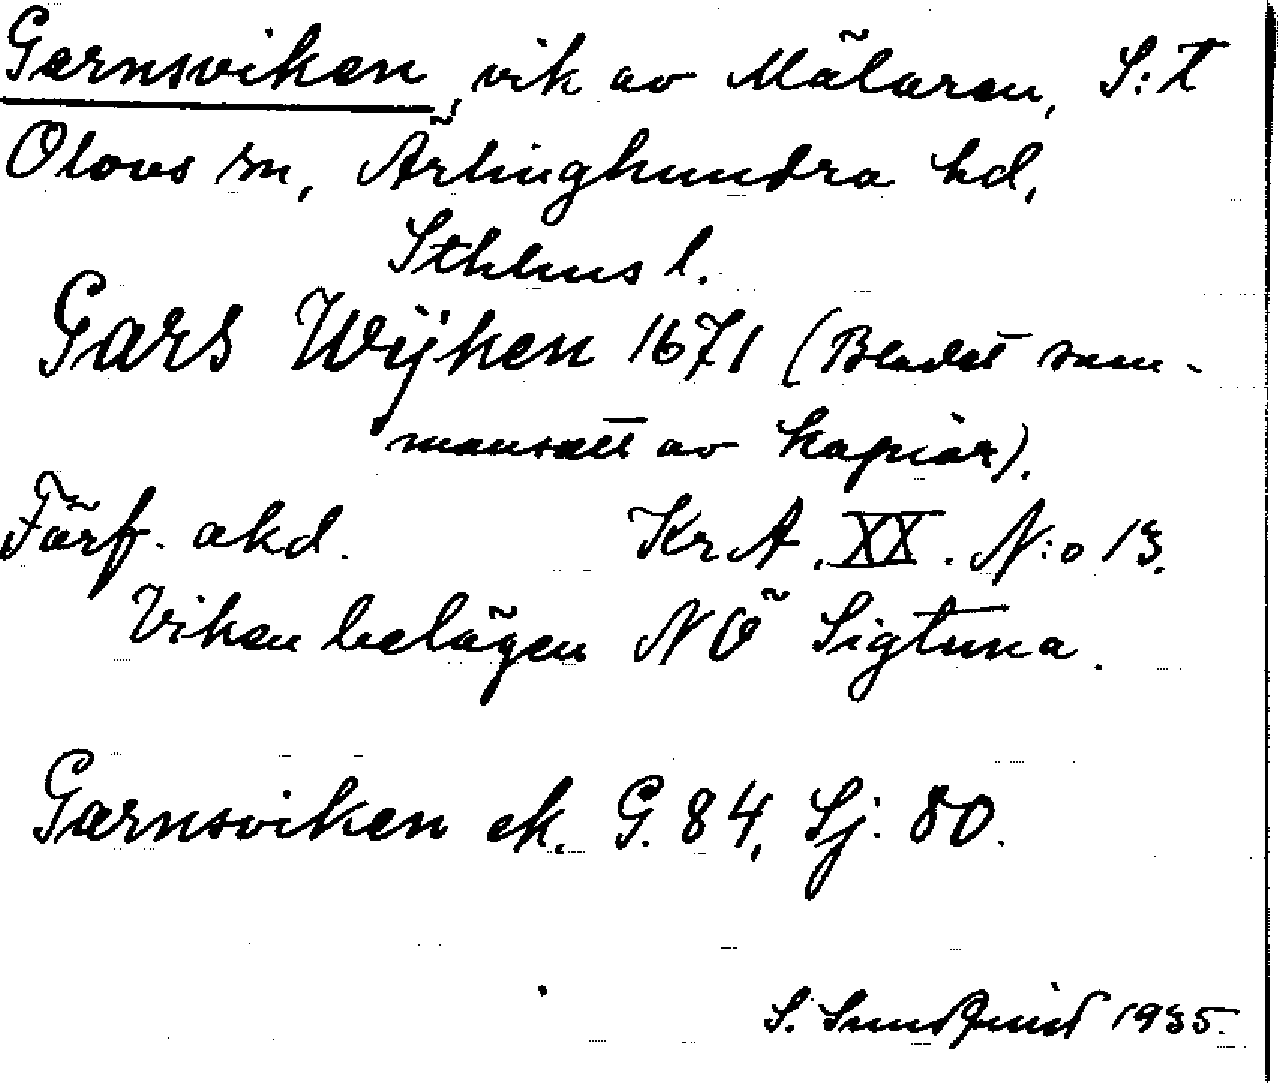 Garnsviken, vik av Mälaren, S:t
Olovs sn, Ärlinghundra hd,
Sthlms l.
Gars Wijken 1671 (Bladet sam-
mansatt av kopior).
Förf. okd. Kr.A. XX. N:o 13.
Viken belägen NÖ Sigtuna.
Garnsviken ek. G. 84, Sj: 80.
S. Sundquist 1935.